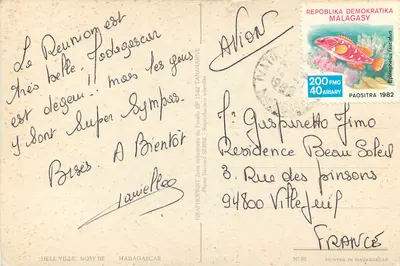 La Réunion est
très belle. Madagascar
est dégeu... mais les gens
y sont super sympas.
Bises. A Bientôt
AVION
REPOBLIKA DEMOKRATIKA
MALAGASY
200 FMG
40 ARIARY
PAOSITRA 1982
Gasparetto Jimo
Residence Beau Soleil
3. Rue des pinsons
94800 Villejuif
FRANCE
HELL VILLE NOSY BE MADAGASCAR
PRINTED IN MADAGASCAR